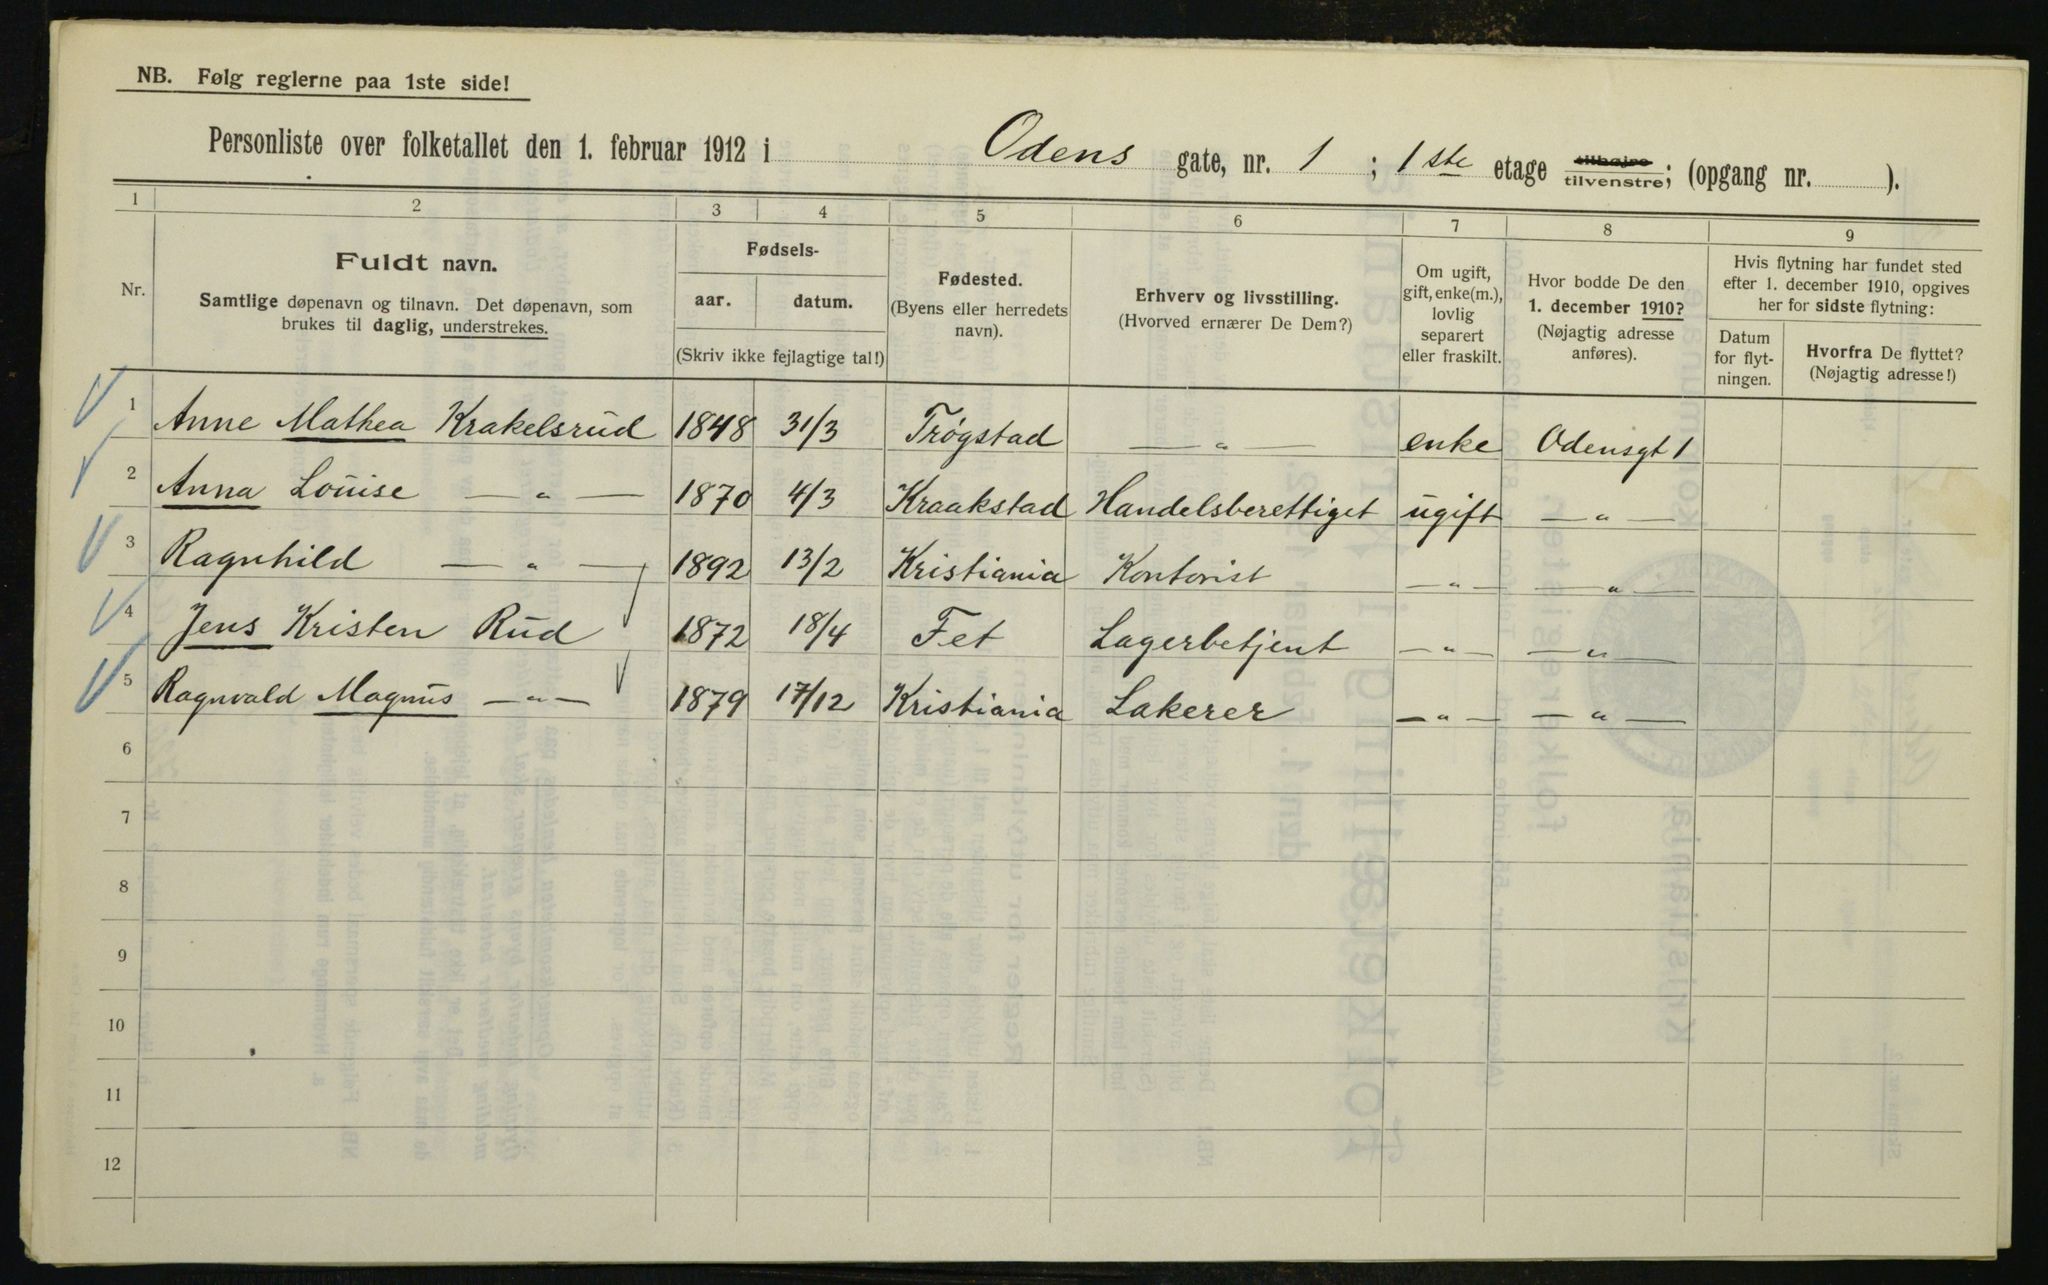 NB. Følg reglerne paa 1ste side!
Personliste over folketallet den 1. februar 1912 i Odens gate, nr. 1 ; 1ste etage tilhøjre tilvenstre; (opgang nr. ).
1 2 3 4 5 6 7 8 9
Nr.
Fuldt navn.
Samtlige døpenavn og tilnavn. Det døpenavn, som
brukes til daglig, understrekes.
Fødsels-
aar. datum.
(Skriv ikke fejlagtige tal!)
Fødested.
(Byens eller herredets
navn).
Erhverv og livsstilling.
(Hvorved ernærer De Dem?)
Om ugift,
gift, enke(m.),
lovlig
separert
eller fraskilt.
Hvor bodde De den
1. december 1910?
(Nøjagtig adresse
anføres).
Hvis flytning har fundet sted
efter 1. december 1910, opgives
her for sidste flytning:
Datum
for flyt-
ningen.
Hvorfra De flyttet?
(Nøjagtig adresse!)
1 Anne Mathea Krakelsrud 1848 31/3 Trøgstad — " — enke Odensgt 1
2 Anna Louise — " — 1870 4/3 Kraakstad Handelsberettiget ugift — " —
3 Ragnhild — " — 1892 13/2 Kristiania Kontorist — " — — " —
4 Jens Kristen Rud 1872 18/4 Fet Lagerbetjent — " — — " —
5 Ragnvald Magnus — " — 1879 17/12 Kristiania Lakerer — " — — " —
6
7
8
9
10
11
12